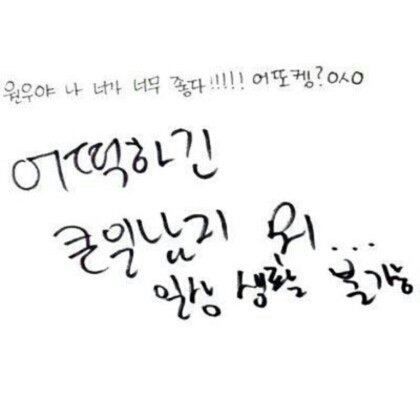 원우야 나 너가 너무 좋다!!!!! 어또케!?ㅇㅅㅇ
어떡하긴
큰일났지 뭐...
일상 생활 불가능